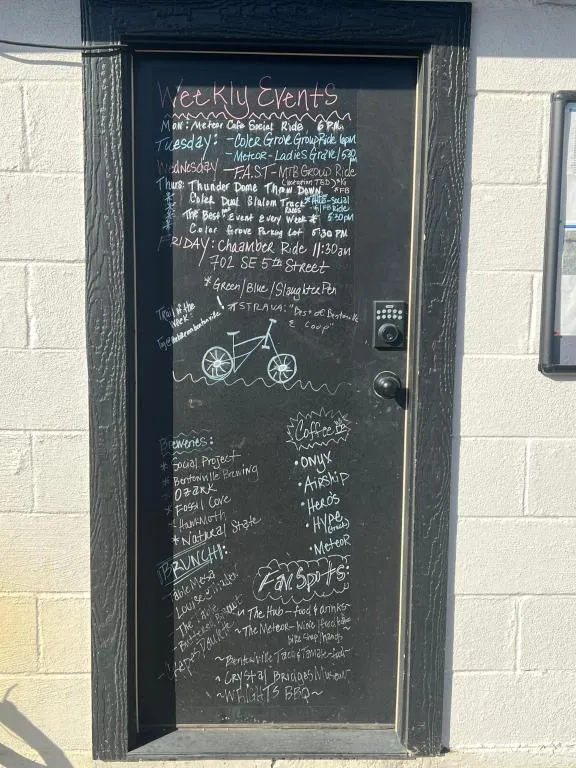 Weekly Events
Mon: Meteor Cafe Social Ride 6 PM
Tuesday: - Coler Grove Group Ride 6pm
Meteor - Ladies Gravel 5:30 pm
Wednesday - F.A.S.T - MTB Group Ride
(location TBD)
Thurs: Thunder Dome Throw Down *FB
* Coler Dual Slalom Track *Hub-Social
Ride
* The Best Event Every Week * 5:30pm
* Coler Grove Parking Lot 5:30 PM
FRIDAY: Chaamber Ride 11:30am
702 SE 5th Street
* Green/Blue/Slaughter Pen
Trail of the
week:
* STRAVA: "Best of Bentonville
Loop"
Breweries:
* Social Project
* Bentonville Brewing
* Ozark
* Fossil Cove
- Hawk Moth
* Natural State
Coffee
• ONYX
• AIRSHIP
• Hero's
• HYPE (truck)
• METEOR
BRUNCH!:
- Table Mesa
- Louise
- The
- Buttered Biscuit
- Crepes Paulette
Fav. Spots:
~ The Hub - food & drinks ~
~ The Meteor - Wine/food
bike shop/hangs
~ Bentonville Taco & Tamale - food ~
~ Crystal Bridges Museum
~ WRIGHTS BBQ ~